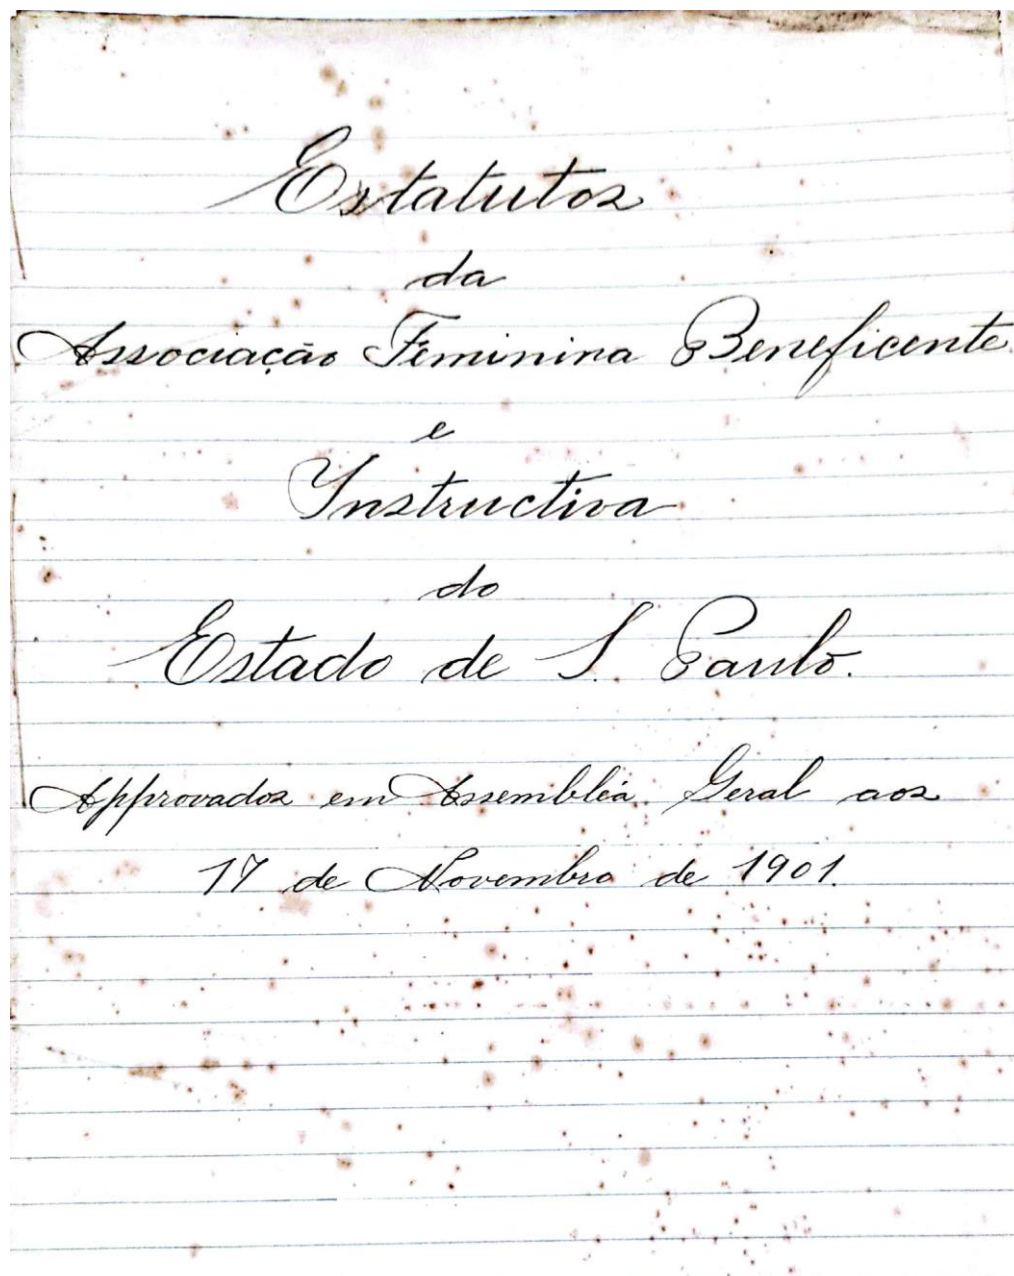 Estatutos
da
Associação Feminina Beneficente
e
Instructiva
do
Estado de S. Paulo.
Approvados em Assembléa Geral aos
17 de Novembro de 1901.